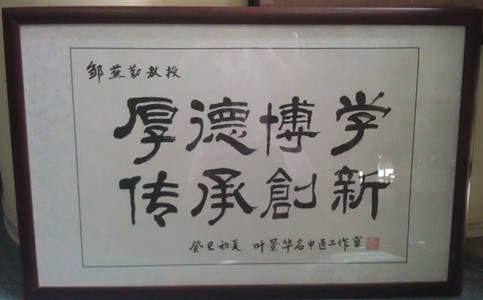 邹燕勤教授
厚德博学
传承創新
癸巳初夏 叶景华名中医工作室